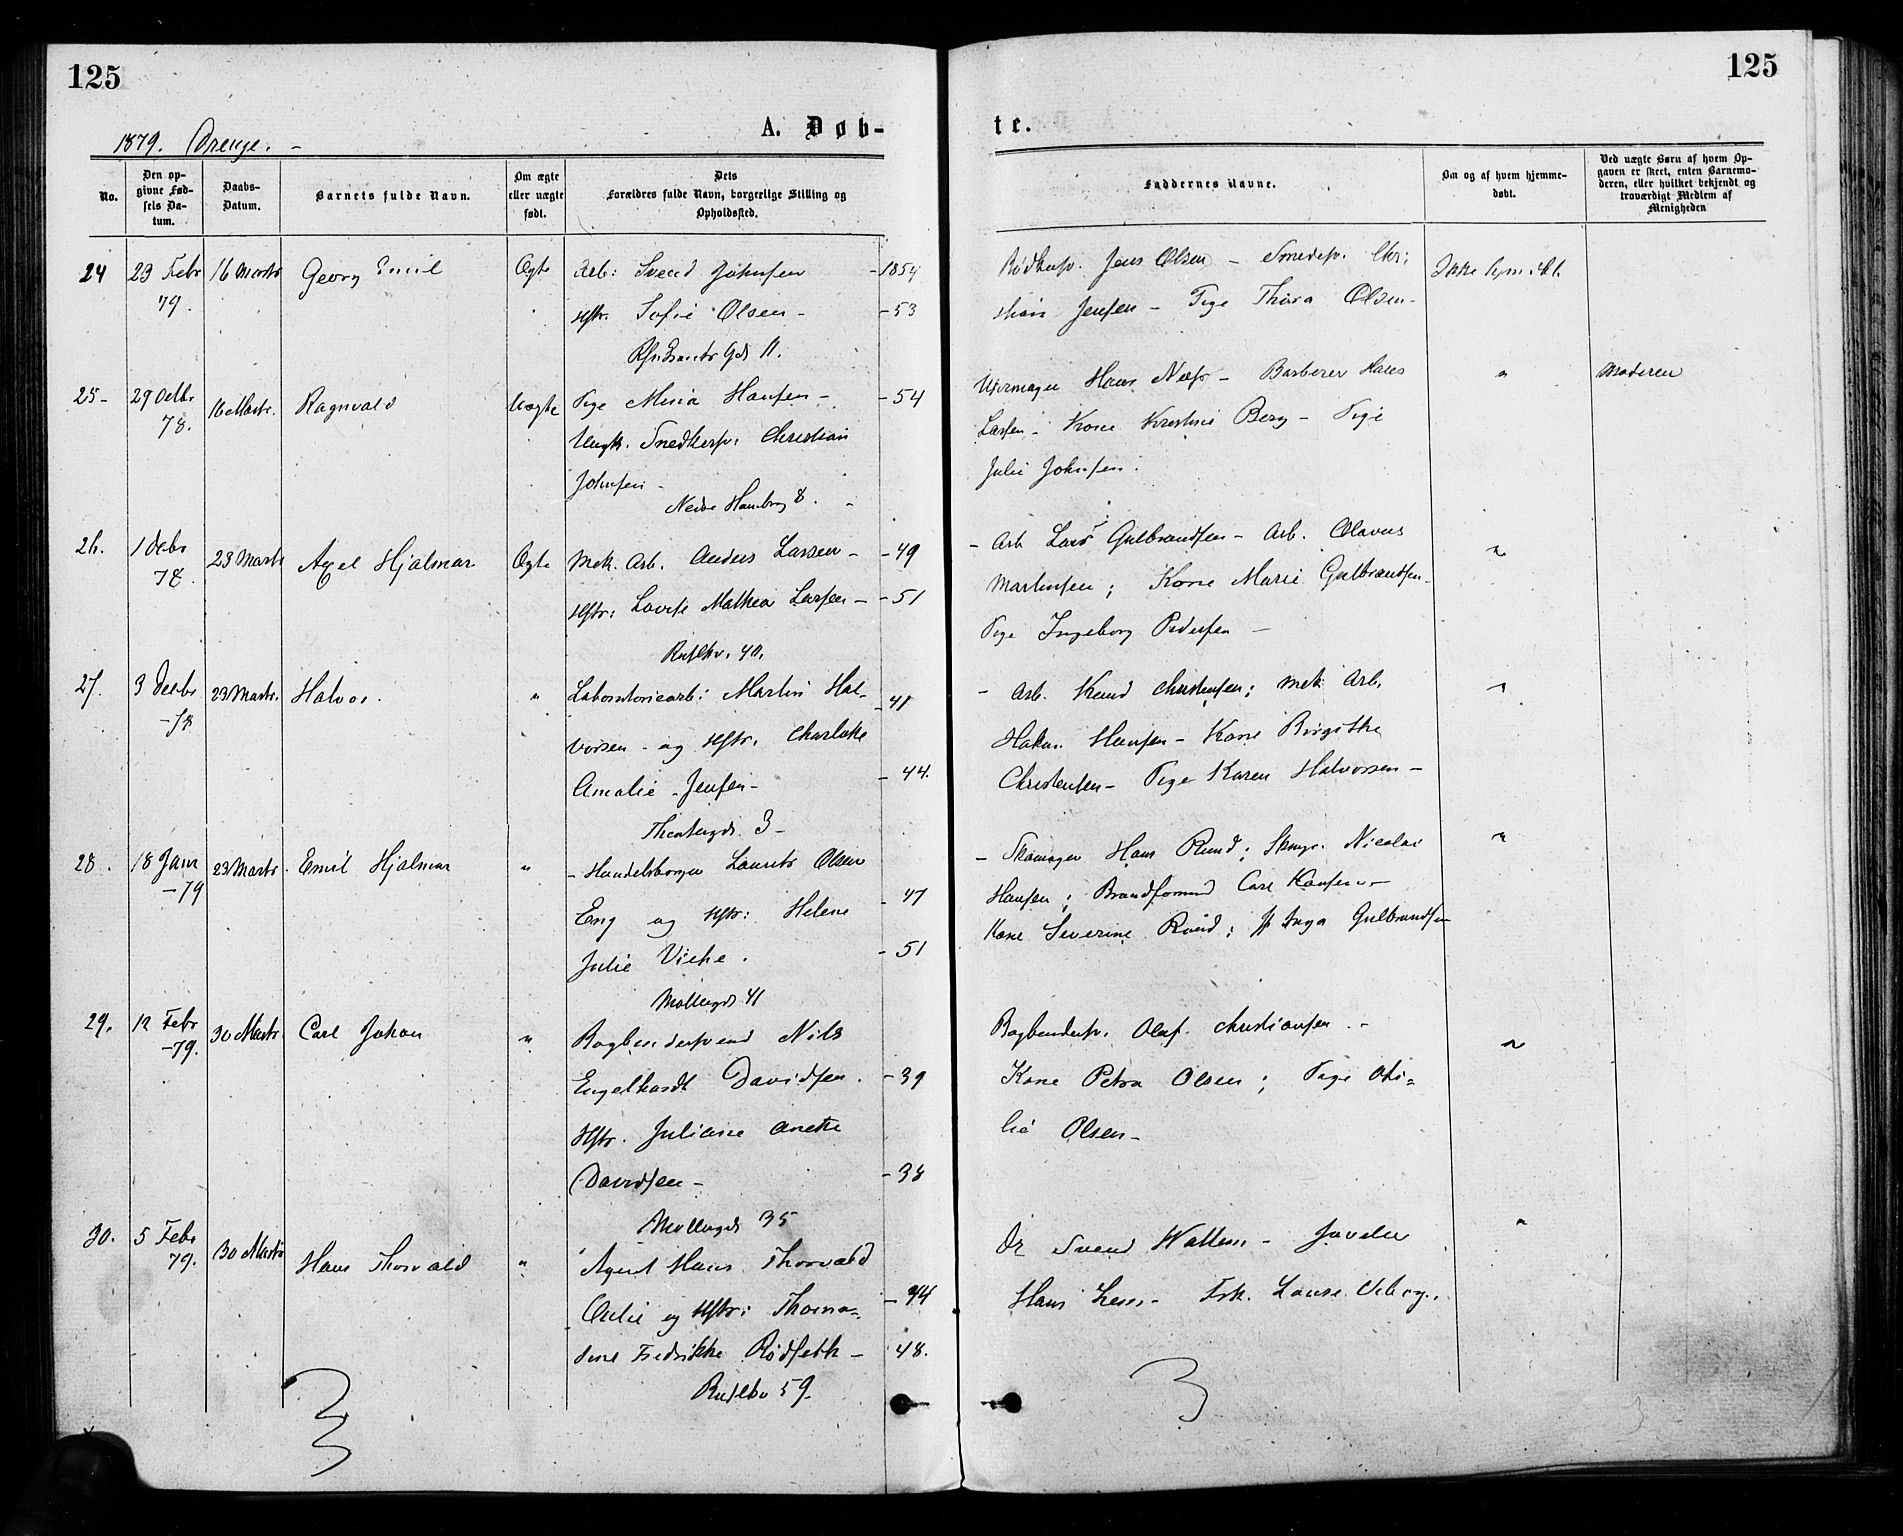 125
125
1879. Drenge. -
A. Døb-
te.
No.
Den op-
givne Fød-
sels Da-
tum.
Daabs-
Datum.
Barnets fulde Navn.
Om ægte
eller uægte
født.
Dets
Forældres fulde Navn, borgerlige Stilling og
Opholdssted.
Faddernes Navne.
Om og af hvem hjemme-
døbt.
Ved uægte Børn af hvem Op-
gaven er skeet, enten Barnemo-
deren, eller hvilket bekjendt og
troværdigt Medlem af
Menigheden
24 23 Febr 16 Marts Georg Emil Ægte Arb: Svend Johnsen - 1854
79. Hstr. Sofie Olsen - - 53
11.
Jens Olsen - Smedsv. Chri
stian Jensen - Pige Thora Olsen -
Ikke hjmdbt.
25- 29 Octbr 16 Marts. Ragnvald Uægte Pige Mina Hansen - - 54
78. Ungk. Snedkersv. Christian
Johnsen -
Nedre Hambrog 8. -
Uhrmager Hans - Barberer Hans
Larsen - Kone Kristine Berg - Pige
Julie Johnsen.
"
Moderen
26. 1 Debr 23 Marts Axel Hjalmar Ægte Mek. Arb. Anders Larsen - - 49
78. Hstr: Lovise Mathea Larsen - - 51
Ruselkv. 40.
- Arb Lars Gulbrandsen - Arb. Olavus
Martinsen; Kone Marie Gulbrandsen -
Pige Ingeborg Pedersen -
"
27. 3 Decbr 23 Marts. Halvor. " Laboratoriearb: Martin Hal-
-78 - 41
vorsen - og Hstr. Charlotte
Amalie - Jensen - - 44.
3 -
- Arb. Knud Christensen; Mek Arb.
Hakon Hansen - Kone Birgithe
Christensen - Pige Karen Halvorsen -
"
28. 18 Janr 23 Marts. Emil Hjalmar " - Handelsborger Laurits Olsen
-79 Eng og Hstr: Helene - 47
Julie Viche. - 51
Møllergd 41
- Skomager Hans Rund; Skmgr. Nicolai
Hansen; Brandformd Carl Hansen -
Kone Severine Rund; Inga Gulbrandsen
"
29. 12 Febr 30 Marts. Carl Johan " Bogbindersvend Nils
-79. Engelhardt Davidsen. - 39
Hstr. Juliane Anette
Davidsen - - 38
Møllergd 35
Bogbindersv. Olaf Christiansen. -
Kone Petra Olsen; Pige Oti-
lie Olsen -
"
30. 5 Febr 30 Marts Hans Thorvald " Agent Hans Thorvald
79. og Hstr: Thoma- - 44
dine Fredrikke Rødseth - - 48.
Ruselkv 59.
Dr Svend Wallem - Juveler
Hans Lem - Frk. Louise
"